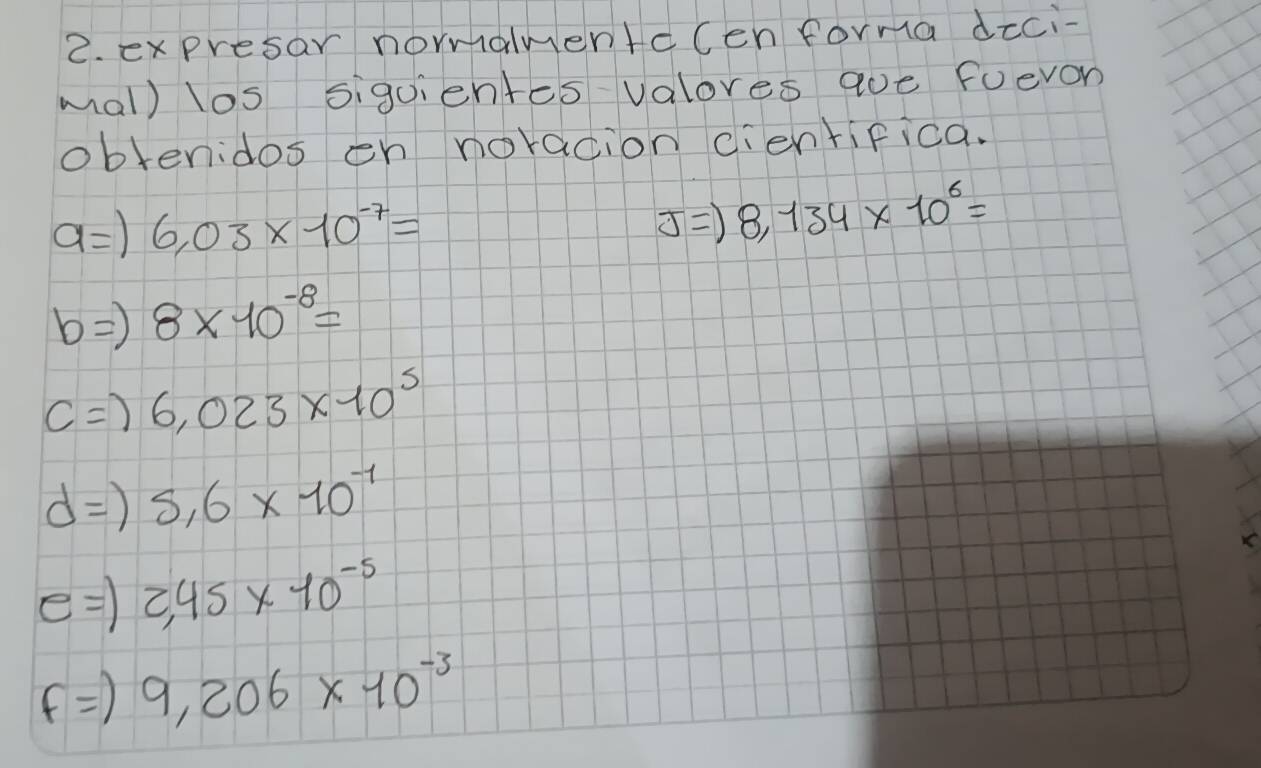 2. expresar normalmente (en forma deci-
mal) los siguientes valores que fueron
obtenidos en notacion cientifica.
a=) 6,03 x 10⁻⁷=
J=) 8,134 x 10⁶=
b=) 8 x 10⁻⁸=
c=) 6,023 x 10⁵
d=) 5,6 x 10⁻¹
e=) 2,45 x 10⁻⁵
f=) 9,206 x 10⁻³